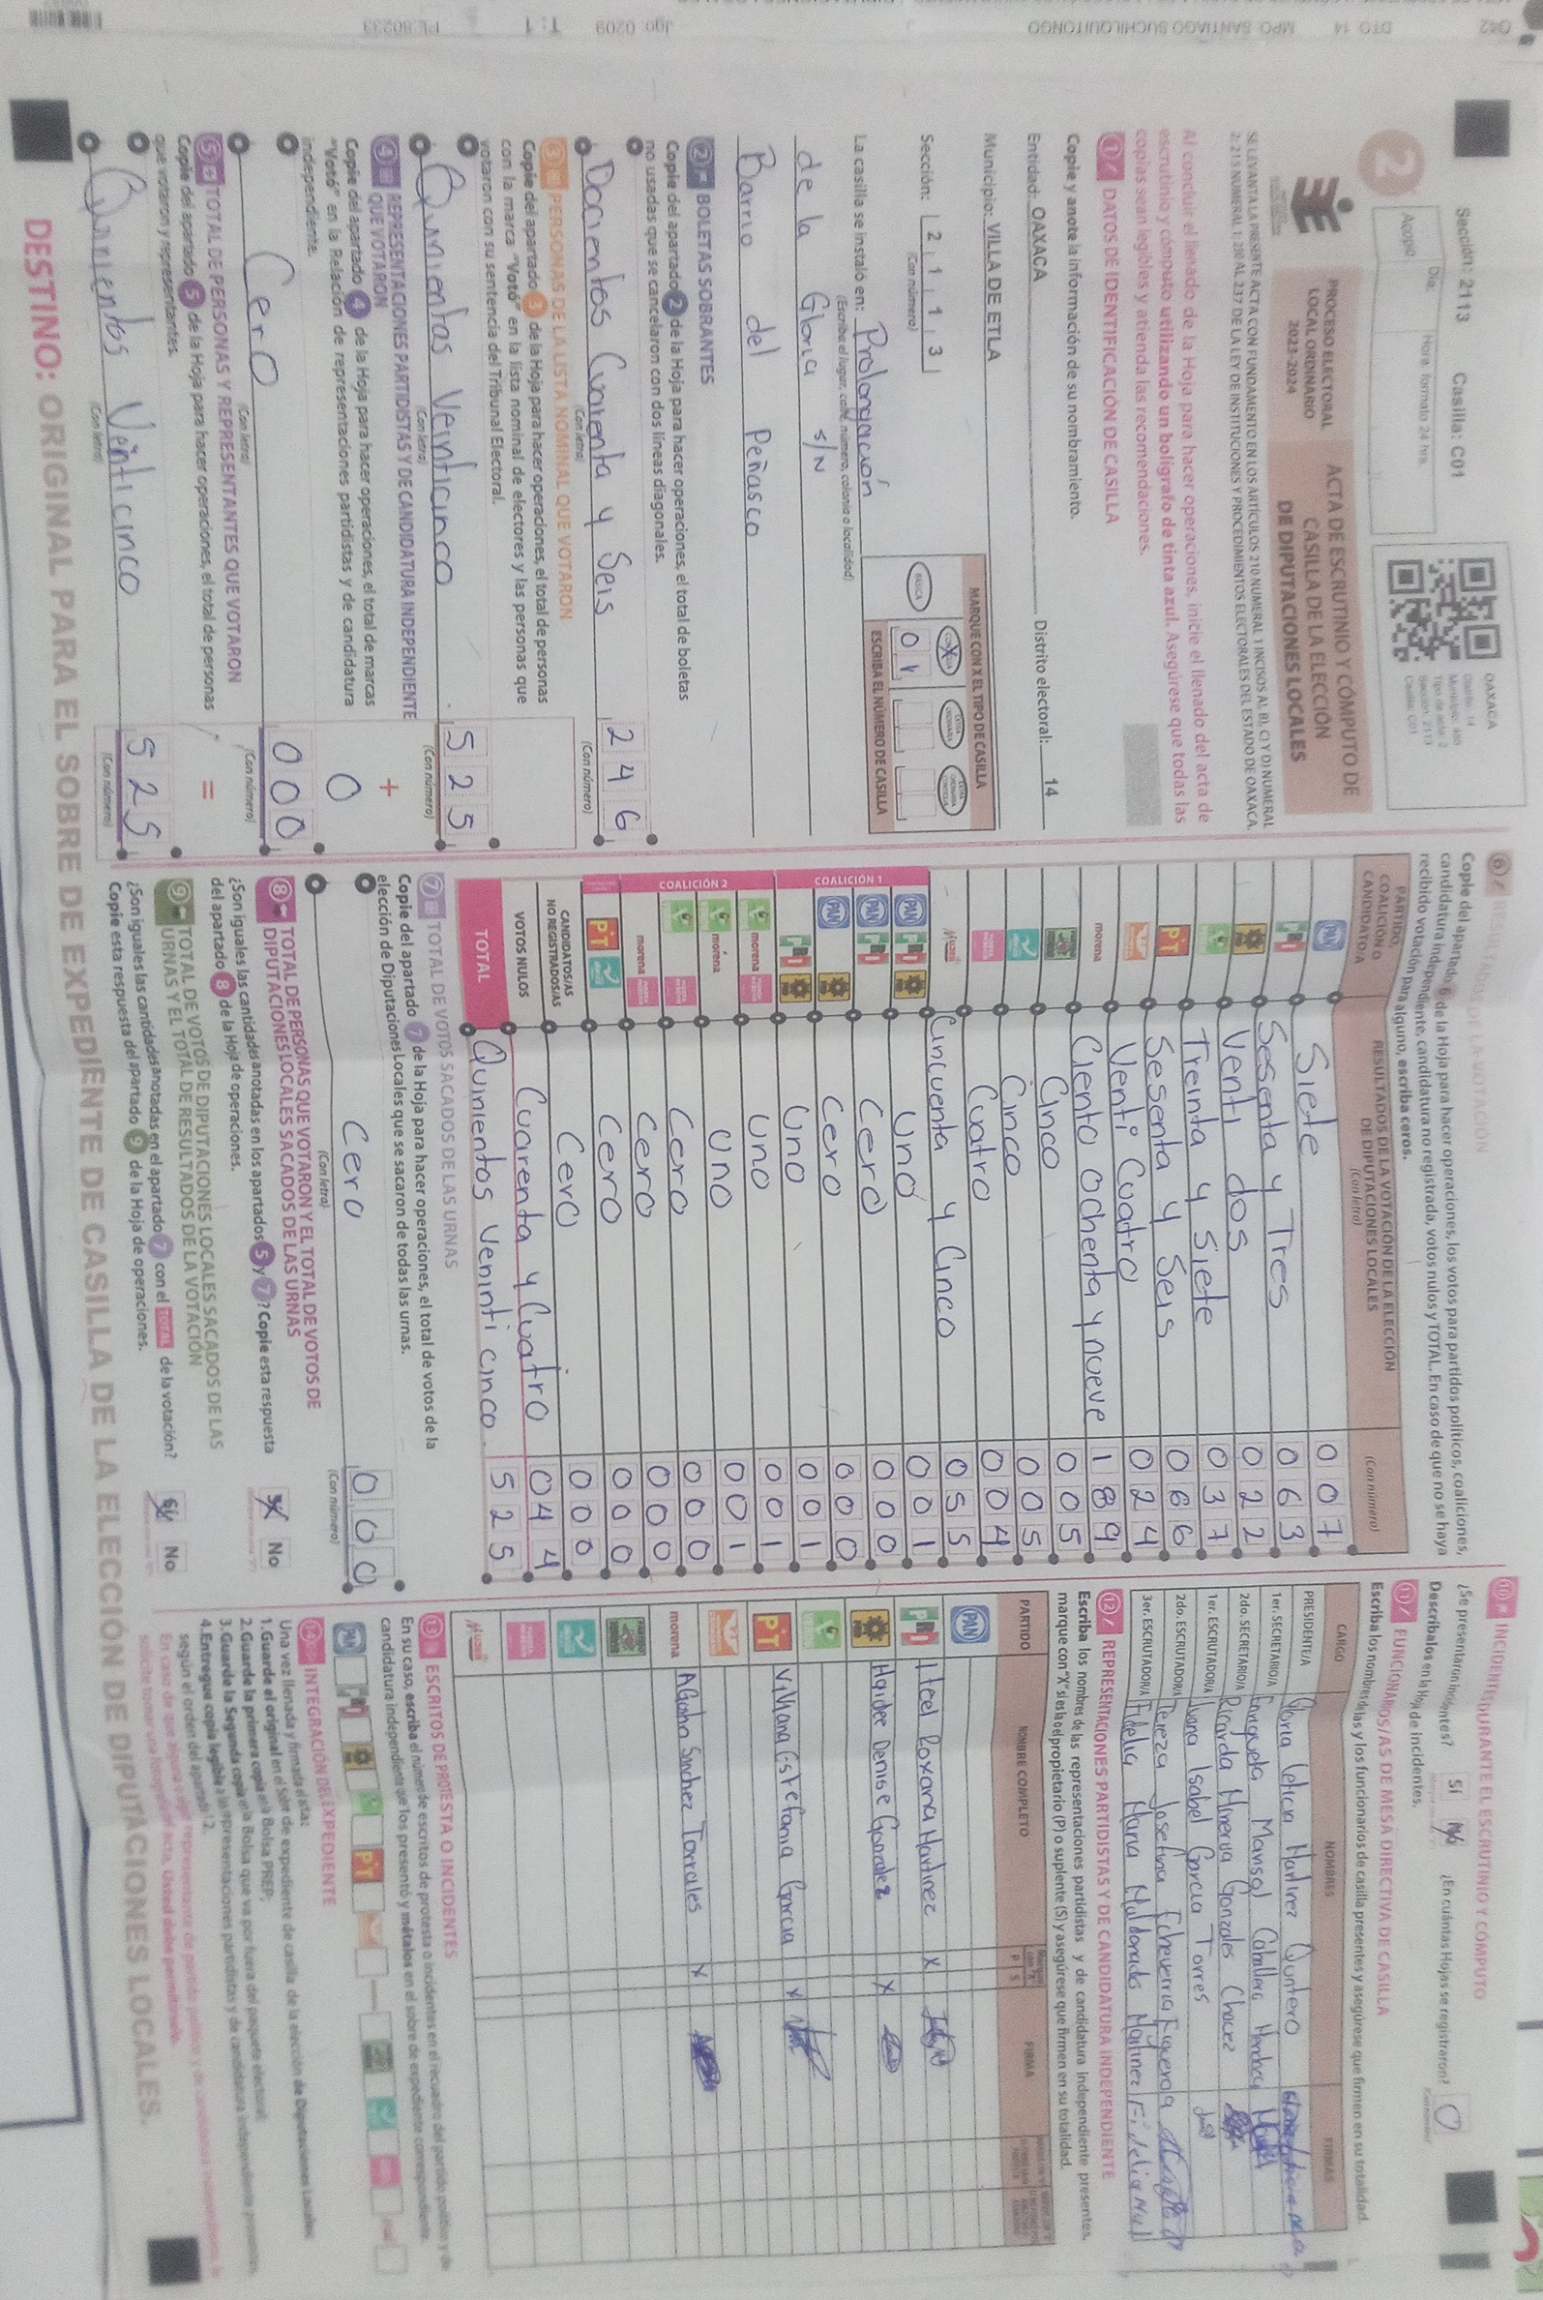 Sección: 2113 Casilla: C01
Día: Hora: formato 24 hrs.
Acopio
OAXACA
2
PROCESO ELECTORAL
LOCAL ORDINARIO
2023-2024
ACTA DE ESCRUTINIO Y CÓMPUTO DE
CASILLA DE LA ELECCIÓN
DE DIPUTACIONES LOCALES
Al concluir el llenado de la Hoja para hacer operaciones, inicie el llenado del acta de
escrutinio y cómputo utilizando un bolígrafo de tinta azul. Asegúrese que todas las
copias sean legibles y atienda las recomendaciones.
1 DATOS DE IDENTIFICACIÓN DE CASILLA
Copie y anote la información de su nombramiento.
Entidad: OAXACA Distrito electoral: 14
Municipio: VILLA DE ETLA
Sección: 2 1 1 3
(Con número)
MARQUE CON X EL TIPO DE CASILLA
BÁSICA X
ESCRIBA EL NÚMERO DE CASILLA
0 1
La casilla se instaló en: Prolongación
(Escriba el lugar, calle, número, colonia o localidad)
de la Gloria S/N
Barrio del Peñasco
2 BOLETAS SOBRANTES
Copie del apartado 2 de la Hoja para hacer operaciones, el total de boletas
no usadas que se cancelaron con dos líneas diagonales.
Docientos Cuarenta y Seis 2 4 6
(Con letra) (Con número)
3 PERSONAS DE LA LISTA NOMINAL QUE VOTARON
Copie del apartado 3 de la Hoja para hacer operaciones, el total de personas
con la marca "Votó" en la lista nominal de electores y las personas que
votaron con su sentencia del Tribunal Electoral.
Quinientas Veinticinco 5 2 5
(Con letra) (Con número)
4 REPRESENTACIONES PARTIDISTAS Y DE CANDIDATURA INDEPENDIENTE
QUE VOTARON
+
Copie del apartado 4 de la Hoja para hacer operaciones, el total de marcas
"Votó" en la Relación de representaciones partidistas y de candidatura
independiente.
0
Cero 0 0 0
(Con letra) (Con número)
5 TOTAL DE PERSONAS Y REPRESENTANTES QUE VOTARON
=
Copie del apartado 5 de la Hoja para hacer operaciones, el total de personas
que votaron y representantes.
Quinientos Veinticinco 5 2 5
(Con letra) (Con número)
6 RESULTADOS DE LA VOTACIÓN
Copie del apartado 6 de la Hoja para hacer operaciones, los votos para partidos políticos, coaliciones,
candidatura independiente, candidatura no registrada, votos nulos y TOTAL. En caso de que no se haya
recibido votación para alguno, escriba ceros.
PARTIDO,
COALICIÓN O
CANDIDATO/A
RESULTADOS DE LA VOTACIÓN DE LA ELECCIÓN
DE DIPUTACIONES LOCALES
(Con letra) (Con número)
PAN Siete 0 0 7
PRI Sesenta y Tres 0 6 3
PRD Venti dos 0 2 2
Treinta y Siete 0 3 7
PT Sesenta y Seis 0 6 6
Venti Cuatro 0 2 4
morena Ciento Ochenta y nueve 1 8 9
Cinco 0 0 5
Cinco 0 0 5
Cuatro 0 0 4
Cincuenta y Cinco 0 5 5
COALICIÓN 1
PAN PRI PRD Uno 0 0 1
PAN PRI Cero 0 0 0
PAN PRD Cero 0 0 0
PRI PRD Uno 0 0 1
COALICIÓN 2
morena Uno 0 0 1
morena Uno 0 0 1
Cero 0 0 0
morena Cero 0 0 0
PT Cero 0 0 0
CANDIDATOS/AS
NO REGISTRADOS/AS Cero 0 0 0
VOTOS NULOS Cuarenta y Cuatro 0 4 4
TOTAL Quinientos Veninti cinco. 5 2 5
7 TOTAL DE VOTOS SACADOS DE LAS URNAS
Copie del apartado 7 de la Hoja para hacer operaciones, el total de votos de la
elección de Diputaciones Locales que se sacaron de todas las urnas.
Cero 0 0 0
(Con letra) (Con número)
8 TOTAL DE PERSONAS QUE VOTARON Y EL TOTAL DE VOTOS DE
DIPUTACIONES LOCALES SACADOS DE LAS URNAS
¿Son iguales las cantidades anotadas en los apartados 5 y 7? Copie esta respuesta
del apartado 8 de la Hoja de operaciones.
Sí No
9 TOTAL DE VOTOS DE DIPUTACIONES LOCALES SACADOS DE LAS
URNAS Y EL TOTAL DE RESULTADOS DE LA VOTACIÓN
¿Son iguales las cantidades anotadas en el apartado 7 con el TOTAL de la votación?
Copie esta respuesta del apartado 9 de la Hoja de operaciones.
Sí No
10 INCIDENTES DURANTE EL ESCRUTINIO Y CÓMPUTO
¿Se presentaron incidentes? Sí No ¿En cuántas Hojas se registraron? 0
Descríbalos en la Hoja de incidentes.
11 FUNCIONARIOS/AS DE MESA DIRECTIVA DE CASILLA
Escriba los nombres de las y los funcionarios de casilla presentes y asegúrese que firmen en su totalidad.
CARGO NOMBRES FIRMAS
PRESIDENTE/A Gloria Leticia Martinez Quintero
1er. SECRETARIO/A Marisol Caballero
2do. SECRETARIO/A Ricarda Minerva Gonzales Chavez
1er. ESCRUTADOR/A Juana Isabel Garcia Torres
2do. ESCRUTADOR/A Tereza Josefina Echeverria Figueroa
3er. ESCRUTADOR/A Fidelia Maria Maldonado Martinez
12 REPRESENTACIONES PARTIDISTAS Y DE CANDIDATURA INDEPENDIENTE
Escriba los nombres de las representaciones partidistas y de candidatura independiente presentes,
marque con "X" si es la o el propietario (P) o suplente (S) y asegúrese que firmen en su totalidad.
PARTIDO NOMBRE COMPLETO P S FIRMA
PAN
PRI Itcel Roxana Martinez X
PRD Haidee Denise Gonzalez X
PT Viviana Estefania Garcia X
morena Agustin Sanchez Torrales X
13 ESCRITOS DE PROTESTA O INCIDENTES
En su caso, escriba el número de escritos de protesta o incidentes en el recuadro del partido político y de
candidatura independiente que los presentó y métalos en el sobre de expediente correspondiente.
14 INTEGRACIÓN DEL EXPEDIENTE
Una vez llenada y firmada el acta:
1. Guarde el original en el sobre de expediente de casilla de la elección de Diputaciones Locales;
2. Guarde la primera copia en la Bolsa PREP;
3. Guarde la Segunda copia en la Bolsa que va por fuera del paquete electoral;
4. Entregue copia legible a las representaciones partidistas y de candidatura independiente presentes,
según el orden del apartado 12.
DESTINO: ORIGINAL PARA EL SOBRE DE EXPEDIENTE DE CASILLA DE LA ELECCIÓN DE DIPUTACIONES LOCALES.
DTO 14 MPO. SANTIAGO SUCHILQUITONGO